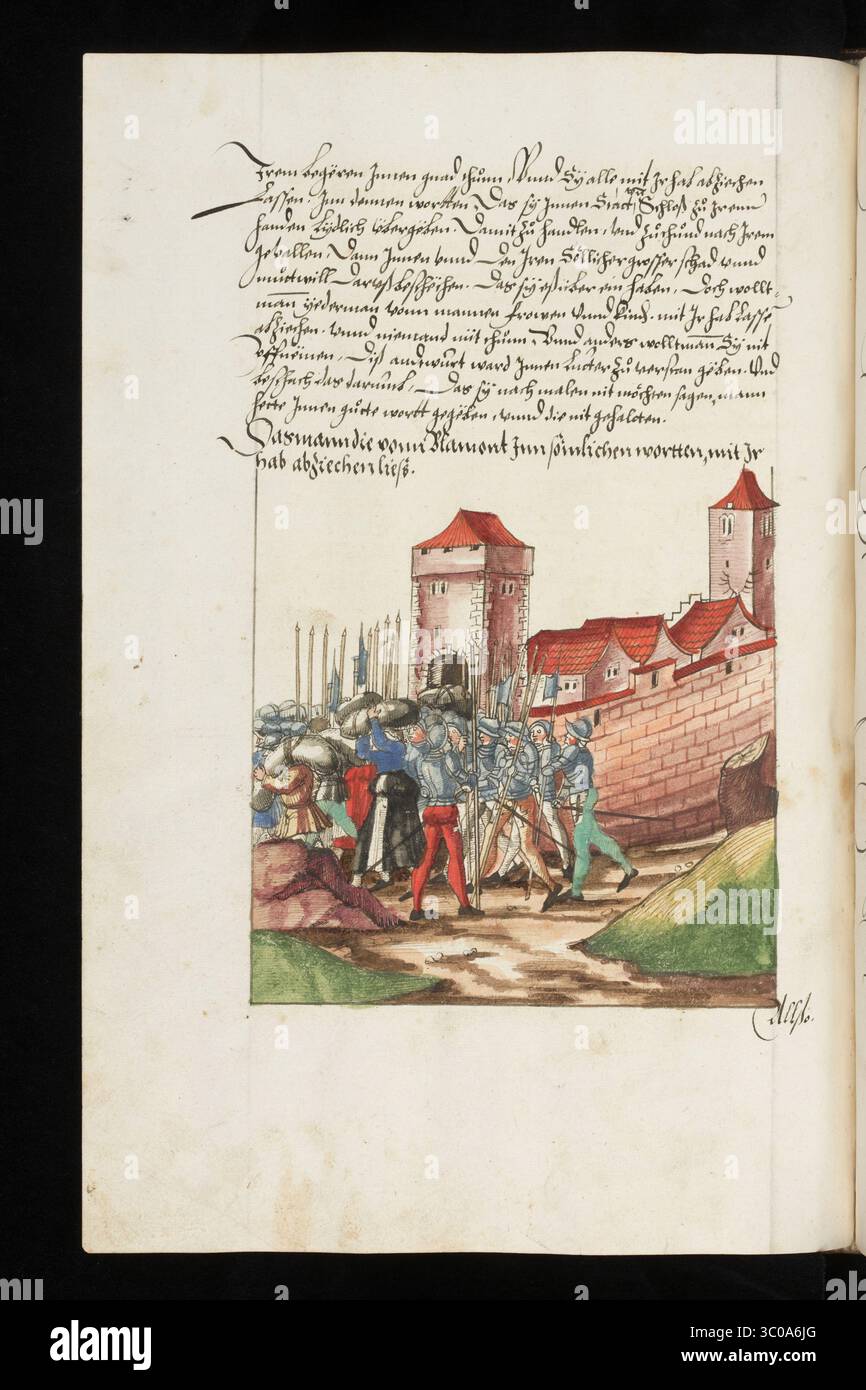 Irem begeren Innen gnad thum, Vnnd Sy alle mit Ir hab abziechen
Lassen. Inn dennen wortten Das sy Innen Statt vnd Schloß zu Irenn
handen Lydlich übergeben. Damit zu handlen, vnd zu thund nach Irem
geuallen, Dann Innen vnnd Den Iren Söllicher grosser schad vnnd
muttwill Daruß beschechen. Das sy es über ein haben, Doch wollt
man yederman vonn mannen frowen Vnnd kind. mit Ir hab Lassē
abziechen. vnnd niemand nüt thunn, Vnnd anders wollt mann Sy nit
vffnemen, Diß andtwurt ward Innen Lutter zu verstan geben. Vnd
beschach das darumb, Das sy nach malen nit möchten sagen, mann
hette Innen gutte wortt gegeben, vnnd die nit gehalten.
Das mann die vonn Blamont Inn sömlichen wortten, mit Ir
hab abziechen ließ.
Allso.
alamy
alamy
Image ID: 3C0A6JG
www.alamy.com